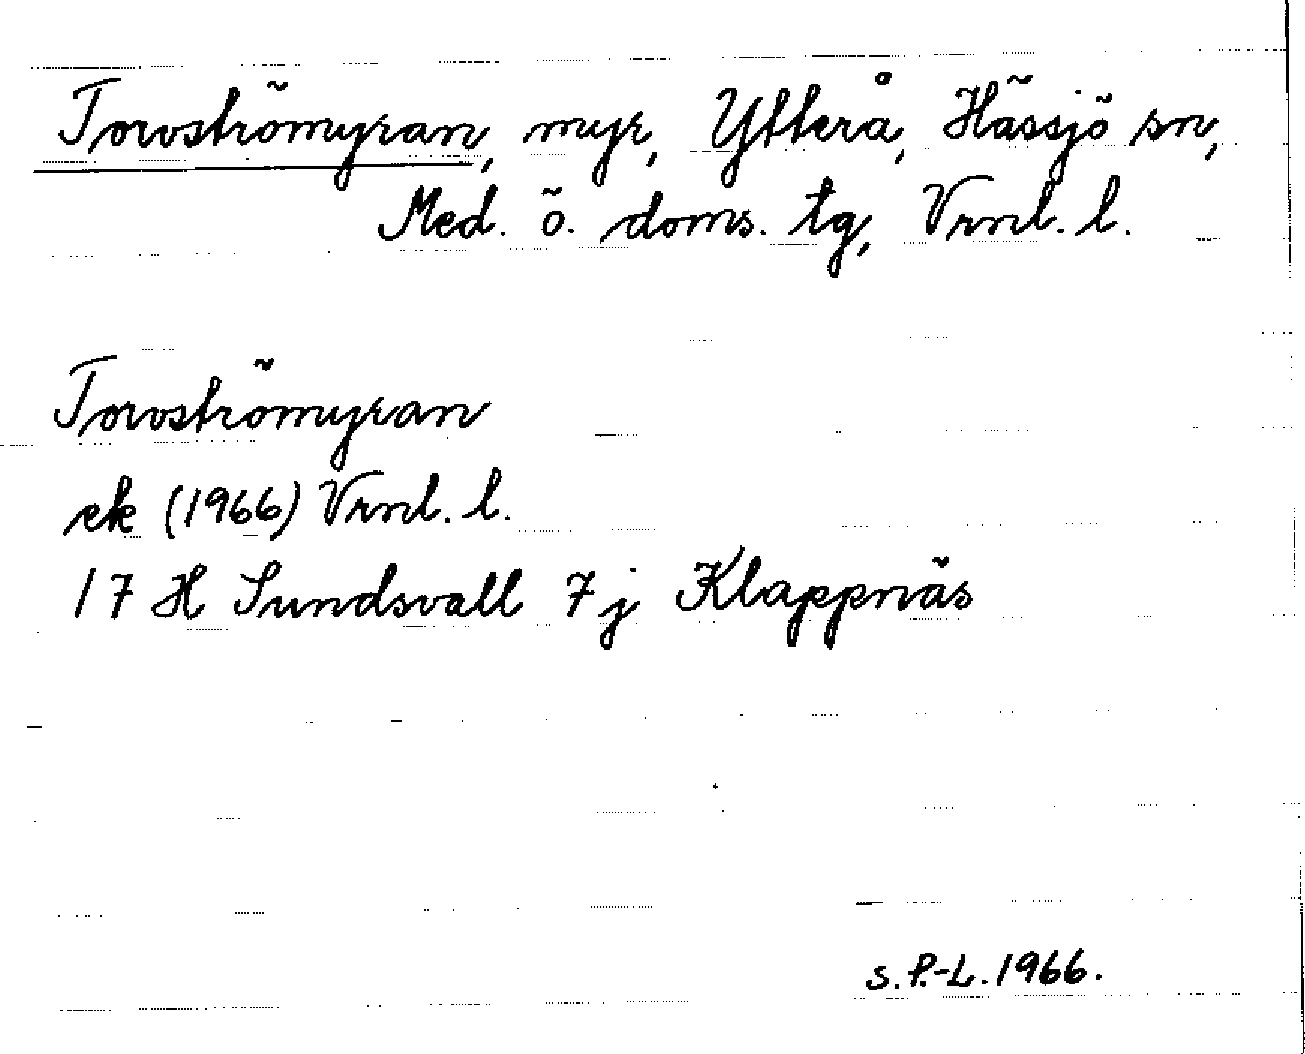 Torvströmyran, myr, Ytterå, Hässjö sn,
Med. ö. doms. tg, Vrnl. l.
Torvströmyran
ek (1966) Vrnl. l.
17 H Sundsvall 7 j Klappnäs
s. P.-L. 1966.